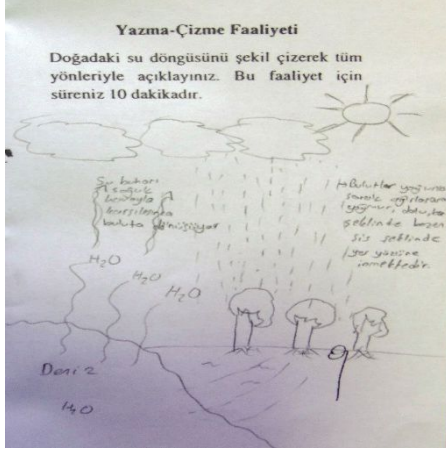 Yazma-Çizme Faaliyeti
Doğadaki su döngüsünü şekil çizerek tüm
yönleriyle açıklayınız. Bu faaliyet için
süreniz 10 dakikadır.
Su buharı
soğuk
havayla
karşılaşınca
buluta dönüşüyor
Bulutlar yoğuna
yağmur, dolu
şeklinde bazen
sis şeklinde
yer yüzüne
inmektedir.
H₂O
H₂O
H₂O
Deniz
H₂O